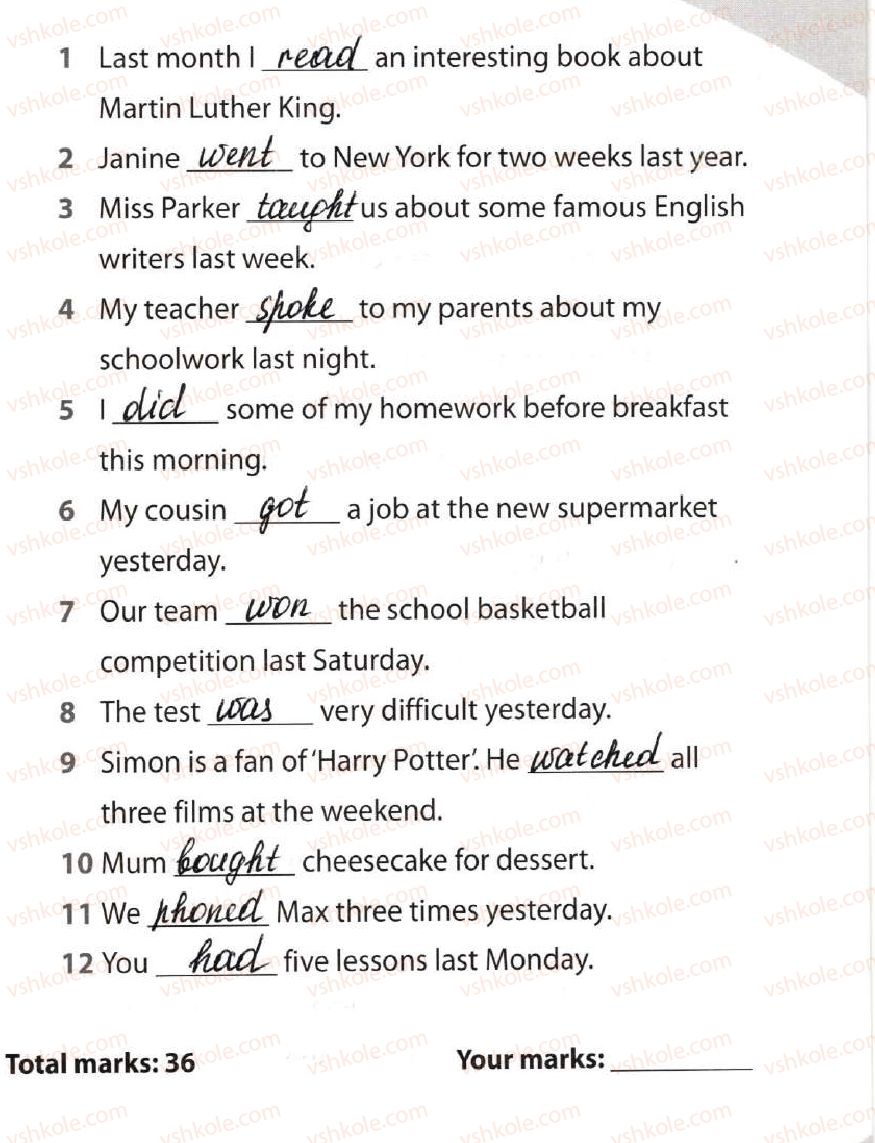 1 Last month I read an interesting book about
Martin Luther King.
2 Janine went to New York for two weeks last year.
3 Miss Parker taught us about some famous English
writers last week.
4 My teacher spoke to my parents about my
schoolwork last night.
5 I did some of my homework before breakfast
this morning.
6 My cousin got a job at the new supermarket
yesterday.
7 Our team won the school basketball
competition last Saturday.
8 The test was very difficult yesterday.
9 Simon is a fan of 'Harry Potter'. He watched all
three films at the weekend.
10 Mum bought cheesecake for dessert.
11 We phoned Max three times yesterday.
12 You had five lessons last Monday.
Total marks: 36 Your marks: